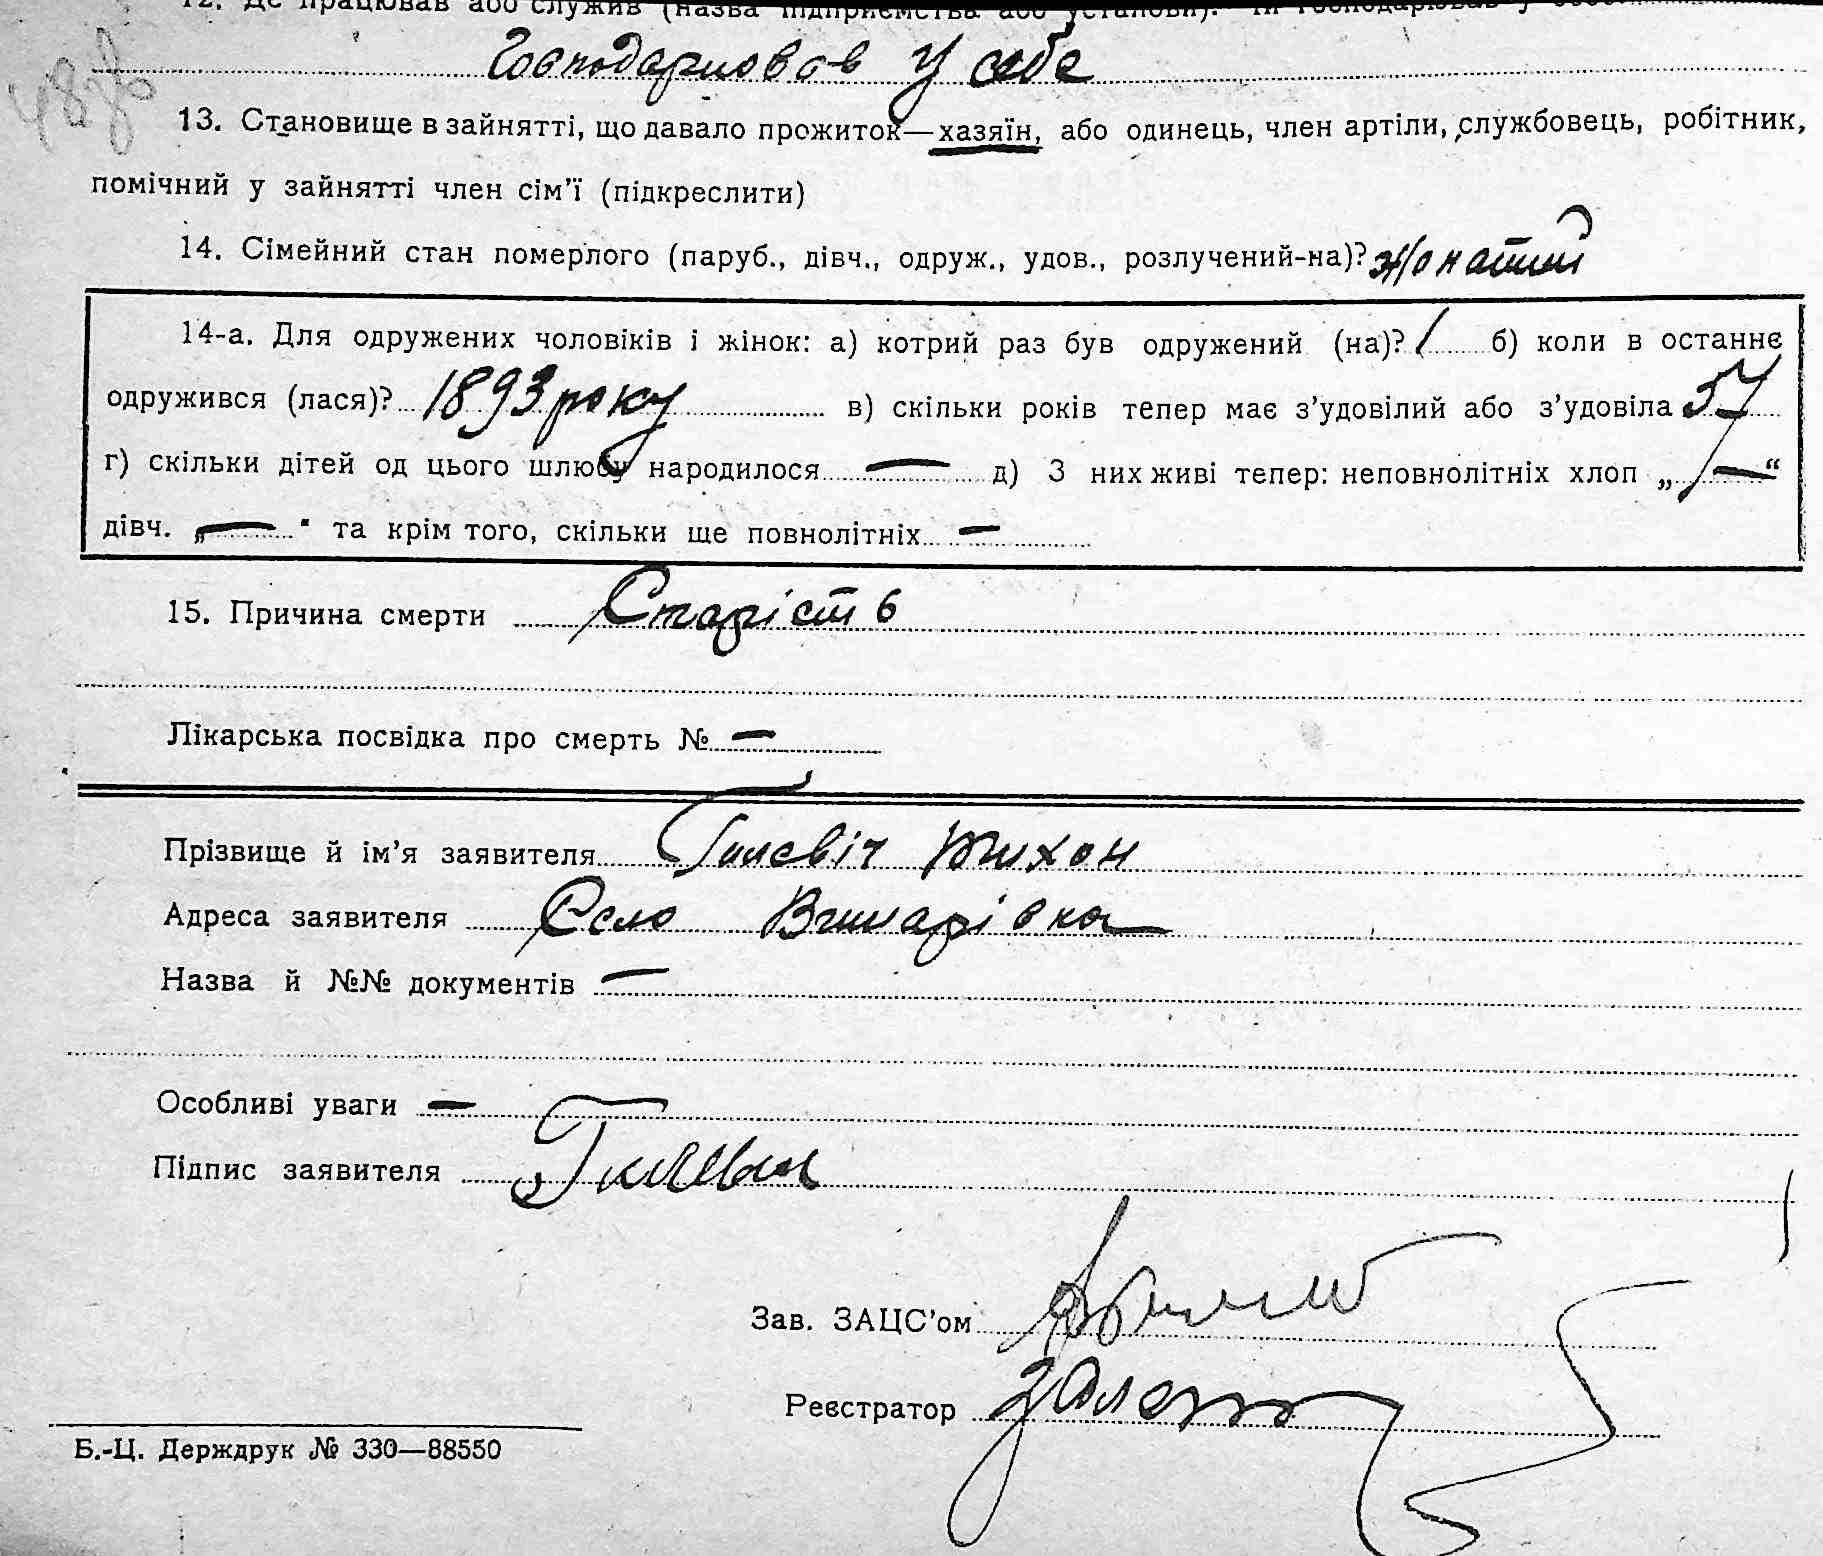 12. Де працював або служив (назва підприємства або установи). Чи господарював у
Господарював у себе
13. Становище в зайнятті, що давало прожиток—хазяїн, або одинець, член артіли, службовець, робітник,
помічний у зайнятті член сім'ї (підкреслити)
14. Сімейний стан померлого (паруб., дівч., одруж., удов., розлучений-на)? Жонатий
14-а. Для одружених чоловіків і жінок: а) котрий раз був одружений (на)? 1 б) коли в останнє
одружився (лася)? 1893 року в) скільки років тепер має з'удовілий або з'удовіла 57
г) скільки дітей од цього шлюбу народилося — д) З них живі тепер: неповнолітніх хлоп „ — “
дівч. „ — " та крім того, скільки ще повнолітніх —
15. Причина смерти Старість
Лікарська посвідка про смерть № —
Прізвище й ім'я заявителя Гилевіч Тихон
Адреса заявителя Село
Назва й №№ документів —
Особливі уваги —
Підпис заявителя
Зав. ЗАЦС'ом
Реєстратор
Б.-Ц. Держдрук № 330—88550